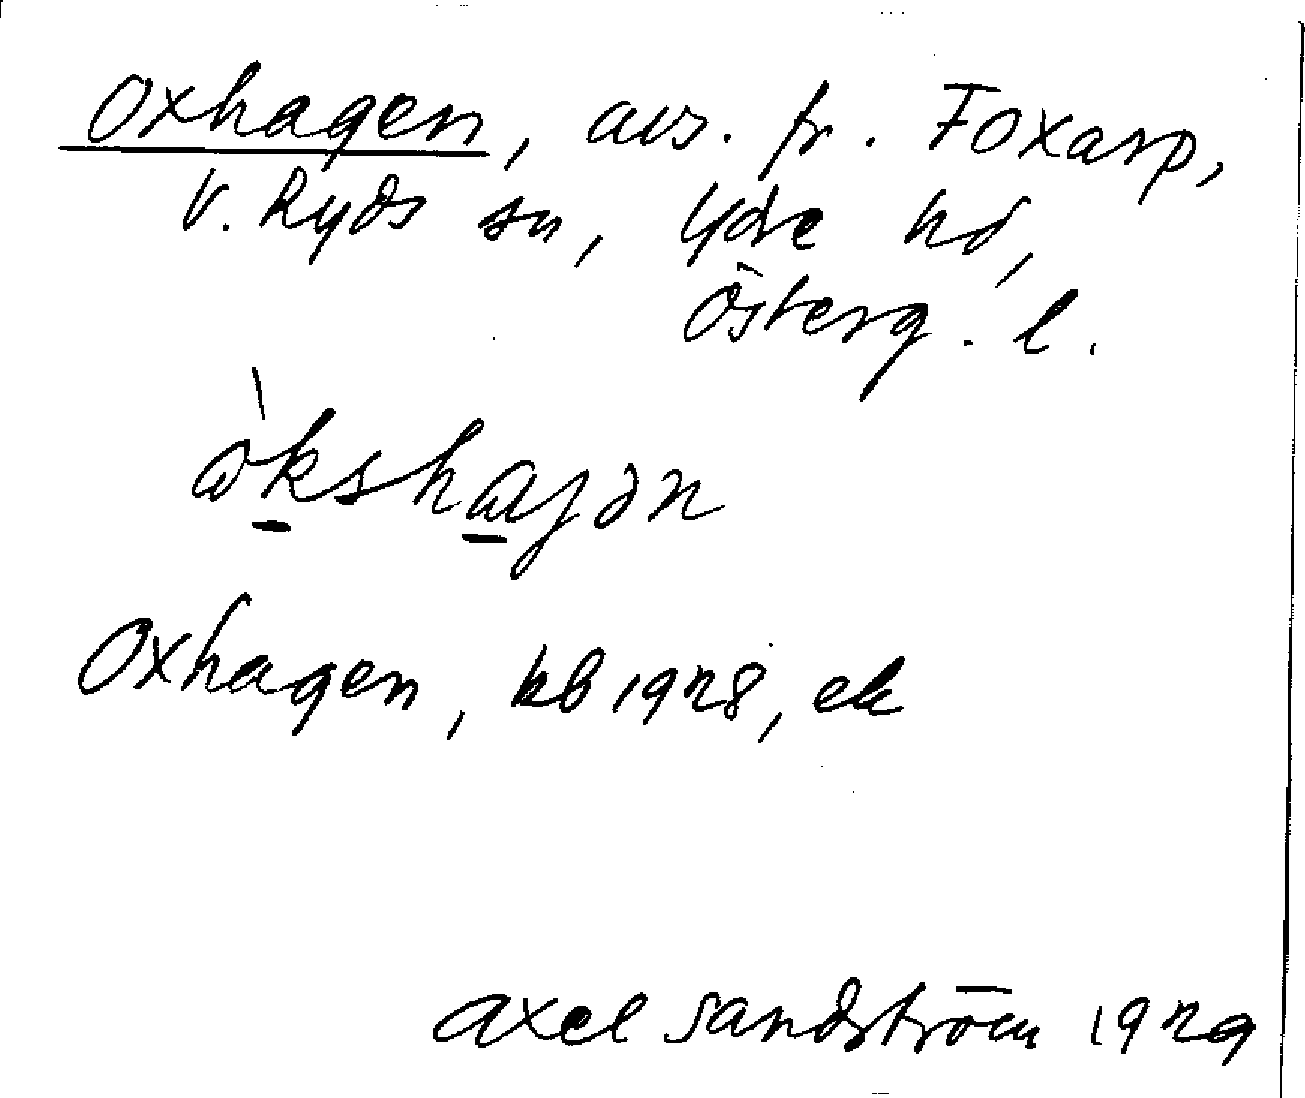 Oxhagen, avs. fr. Foxarp,
V. Ryds sn, Ydre hd,
Österg. l.
òkshajən
Oxhagen, kb 1928, ek
Axel Sandström 1929